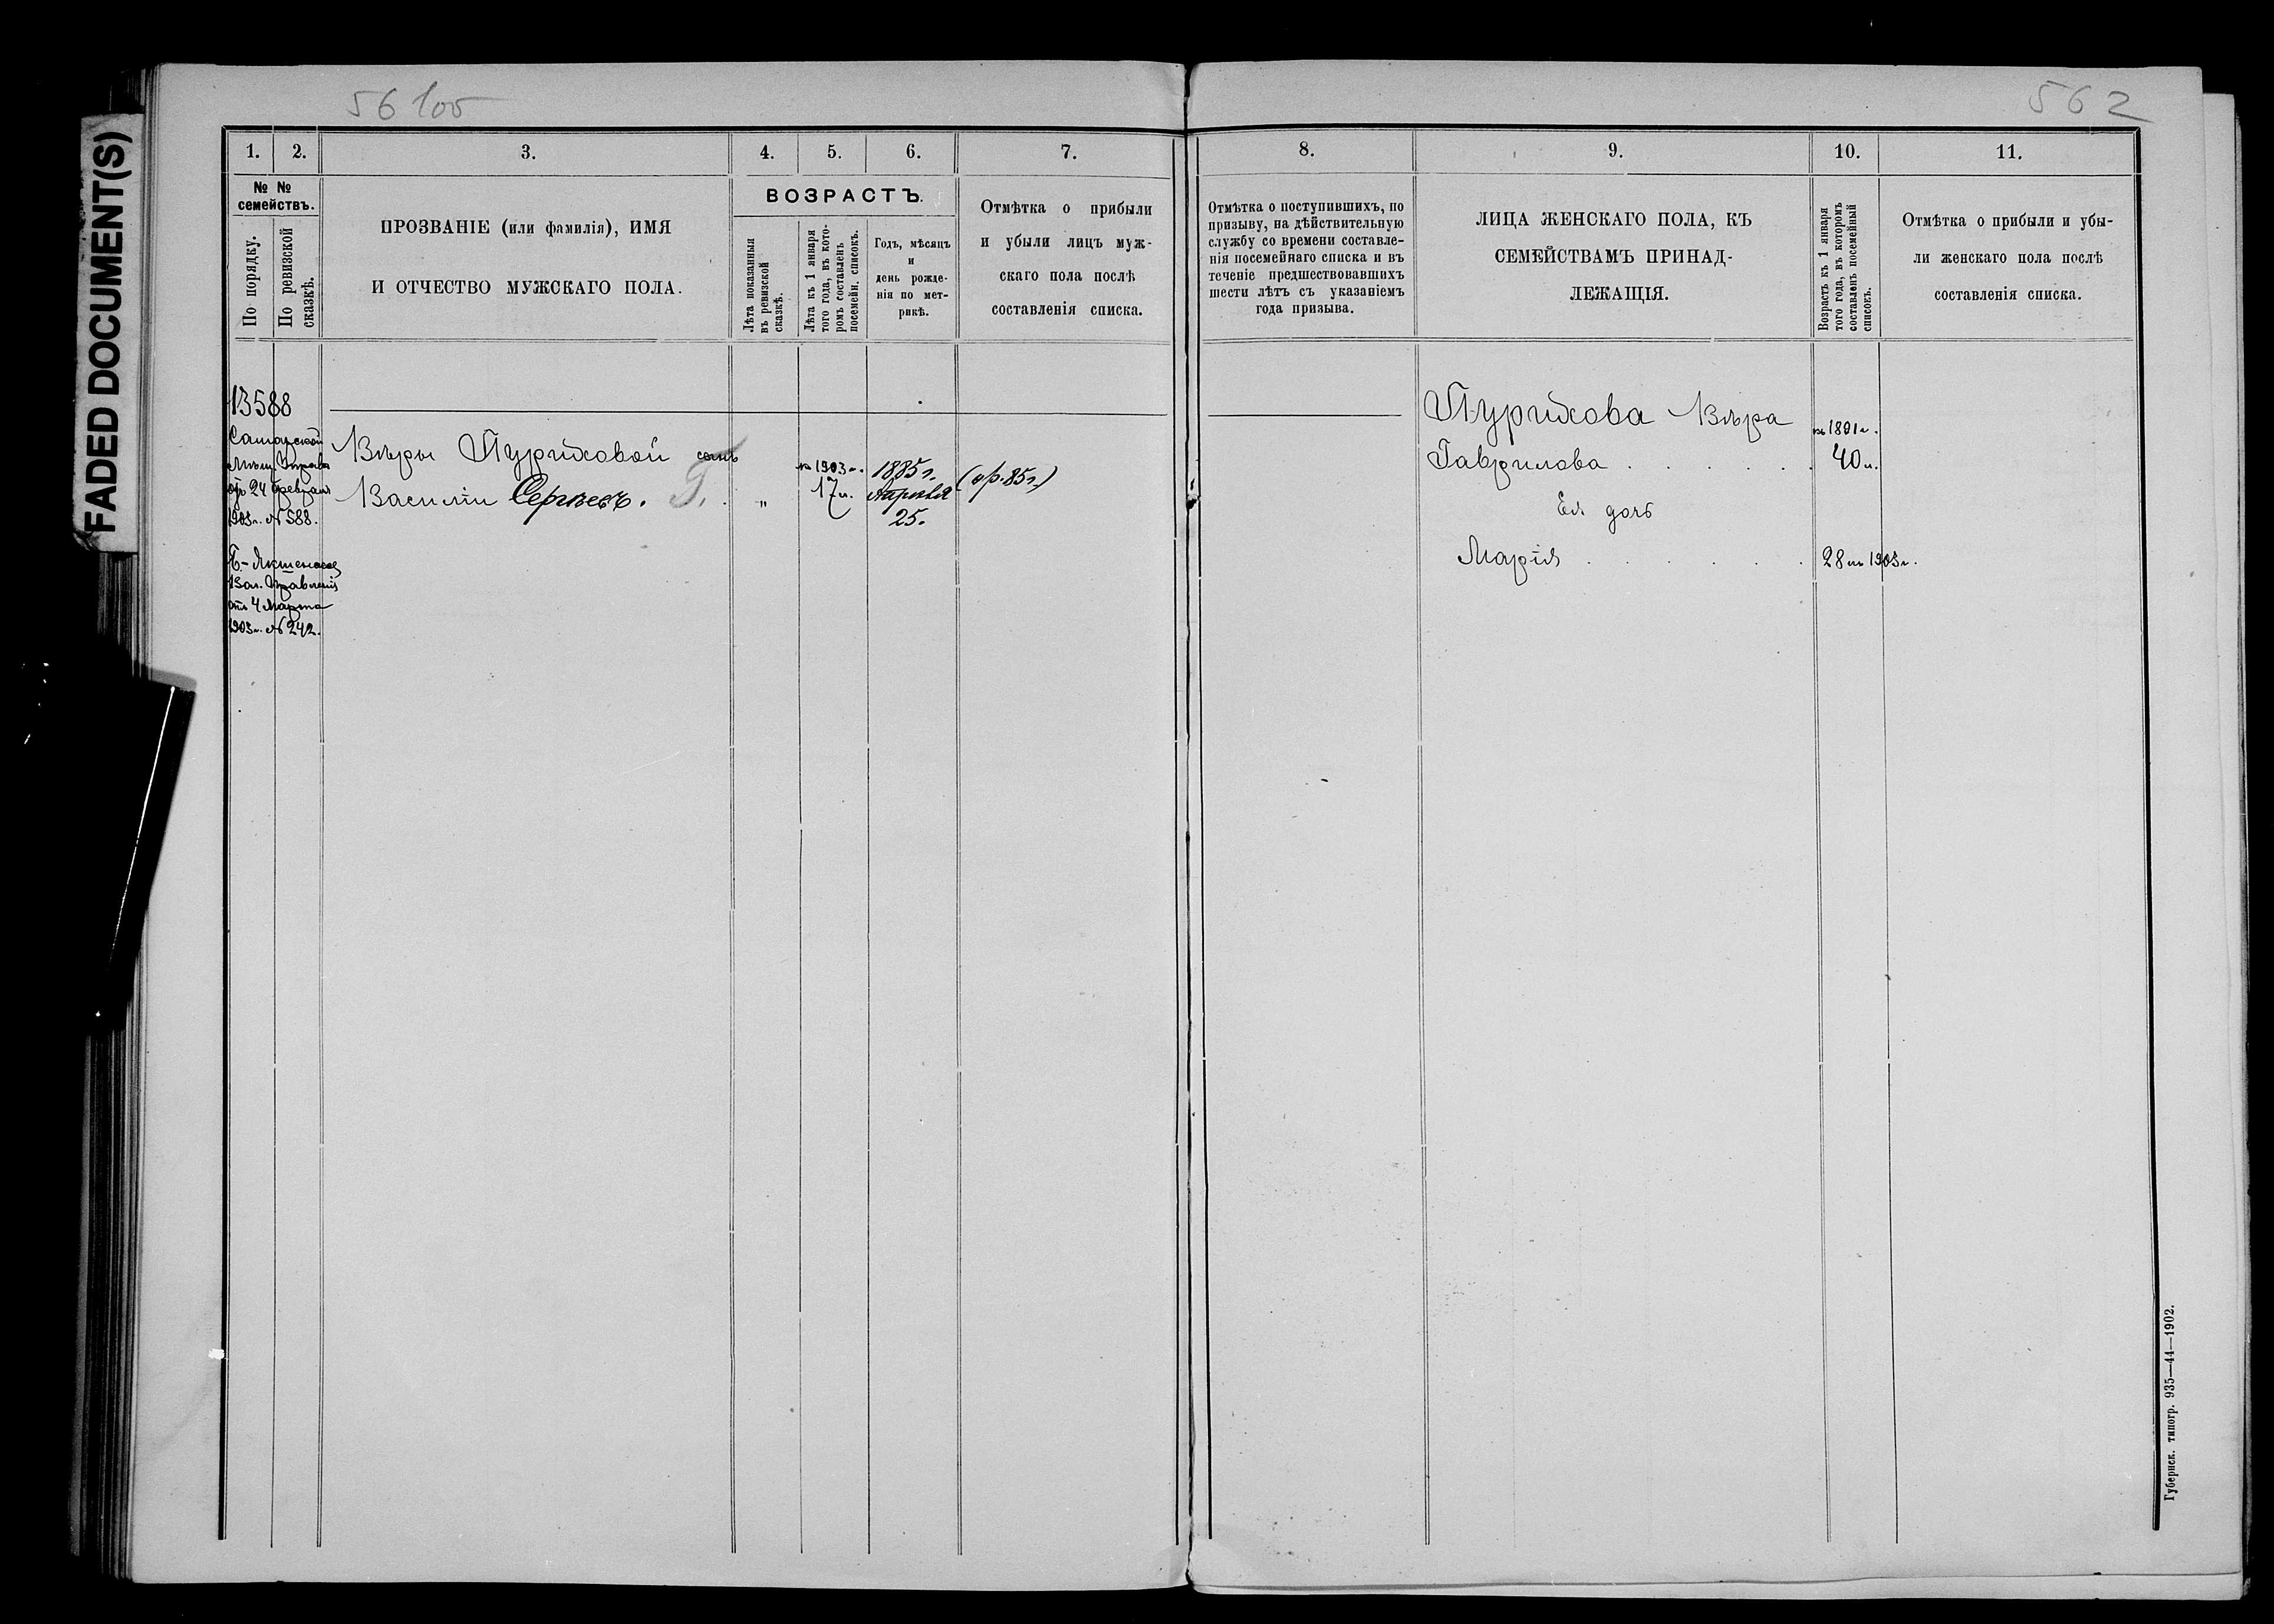 FADED DOCUMENT(S)
56 105
562
1. 2. 3. 4. 5. 6. 7.
№ № семействъ.
По порядку.
По ревизской сказкѣ.
ПРОЗВАНІЕ (или фамилія), ИМЯ
И ОТЧЕСТВО МУЖСКАГО ПОЛА.
ВОЗРАСТЪ.
Лѣта показанныя
въ ревизской
сказкѣ.
Лѣта къ 1 января
того года, въ кото-
ромъ составленъ
посемейн. списокъ.
Годъ, мѣсяцъ
и
день рожде-
нія по мет-
рикѣ.
Отмѣтка о прибыли
и убыли лицъ муж-
скаго пола послѣ
составленія списка.
13588
Самарской
Мѣщ. Управы
отъ 24 февраля
1903 г. № 588.
Вол. Правленія
отъ 4 Марта
1903 г. № 242.
Вѣры Пуриховой сынъ
Василій Сергѣевъ. Г.
"
къ 1903 г.
17 л.
1885 г.
Апрѣля
25.
(ор. 85 г.)
8. 9. 10. 11.
Отмѣтка о поступившихъ, по
призыву, на дѣйствительную
службу со времени составле-
нія посемейнаго списка и въ
теченіе предшествовавшихъ
шести лѣтъ съ указаніемъ
года призыва.
ЛИЦА ЖЕНСКАГО ПОЛА, КЪ
СЕМЕЙСТВАМЪ ПРИНАД-
ЛЕЖАЩІЯ.
Возрастъ къ 1 января
того года, въ которомъ
составленъ посемейный
списокъ.
Отмѣтка о прибыли и убы-
ли женскаго пола послѣ
составленія списка.
Пурихова Вѣра
Гаврилова . . . . . .
къ 1891 г.
40 л.
Ея дочь
Марія . . . . . . 28 къ 1903 г.
Губернск. типогр. 935—44—1902.